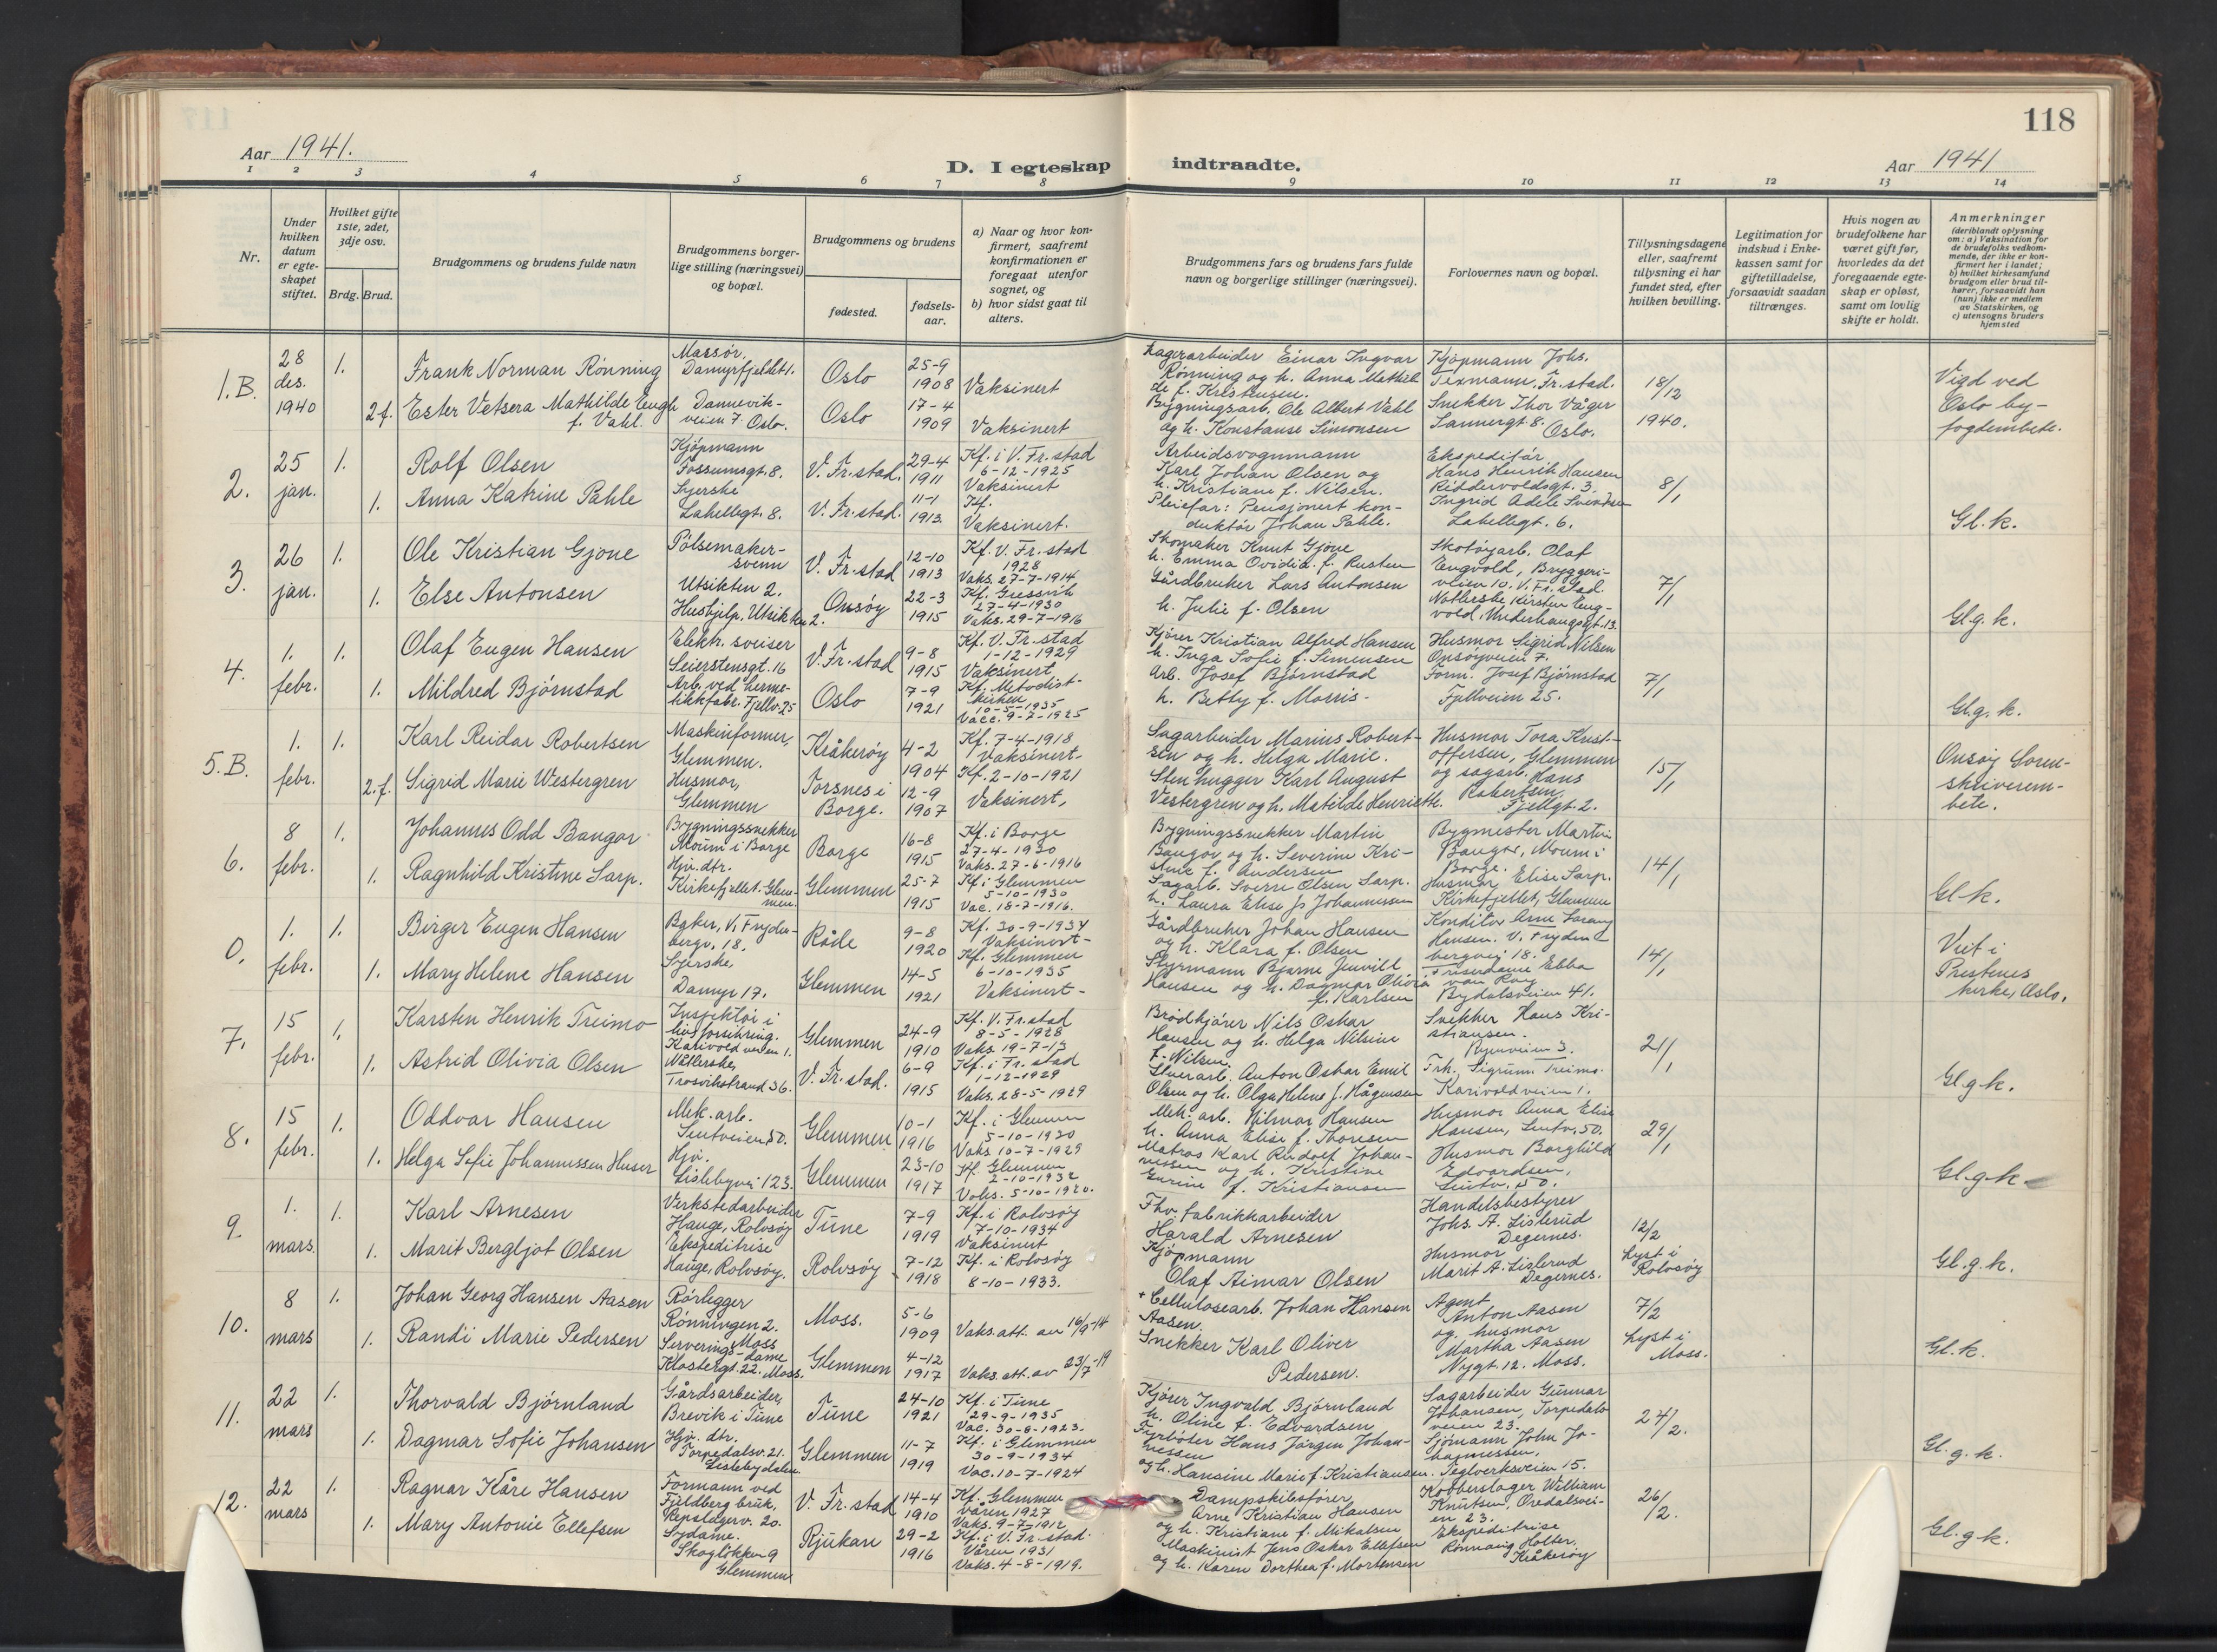 118
Aar 1941.
D. I egteskap indtraadte.
Aar 1941
1 2 3 4 5 6 7 8 9 10 11 12 13 14
Nr.
Under hvilken datum er egteskapet stiftet.
Hvilket gifte 1ste, 2det, 3dje osv.
Brdg. Brud.
Brudgommens og brudens fulde navn
Brudgommens borgerlige stilling (næringsvei) og bopæl.
Brudgommens og brudens
fødested.
fødselsaar.
a) Naar og hvor konfirmert, saafremt konfirmationen er foregaat utenfor sognet, og
b) hvor sidst gaat til alters.
Brudgommens fars og brudens fars fulde navn og borgerlige stillinger (næringsvei).
Forlovernes navn og bopæl.
Tillysningsdagene eller, saafremt tillysning ei har fundet sted, efter hvilken bevilling.
Legitimation for indskud i Enkekassen samt for giftetilladelse, forsaavidt saadan tiltrænges.
Hvis nogen av brudefolkene har været gift før, hvorledes da det foregaaende egteskap er opløst, samt om lovlig skifte er holdt.
Anmerkninger (deriblandt oplysning om: a) Vaksination for de brudefolks vedkommende, der ikke er konfirmert her i landet; b) hvilket kirkesamfund brudgom eller brud tilhører, forsaavidt han (hun) ikke er medlem av Statskirken, og c) utensogns bruders hjemsted
1.B. 28 des. 1940
1. Frank Norman Rønning
Massør, Damyrfjeldet 1.
Oslo 25-9 1908 Vaksinert
2 f. Ester Vetsera Mathilde Engh f. Vahl.
Dannevikveien 7. Oslo.
Oslo 17-4 1909 Vaksinert
Lagerarbeider Einar Ingvar Rønning og h. Anna Mathilde f. Kristensen.
Bygningsarb. Ole Albert Vahl og h. Konstanse Simonsen
Kjøpmann Johs. Texmann, Fr.stad.
Snekker Thor Våger Sannergt. 8. Oslo.
18/12 1940.
Vigd ved Oslo byfogdembete.
2. 25 jan.
1. Rolf Olsen
Kjøpmann Fossumsgt. 8.
V. Fr.stad. 29-4 1911
Kf. i V. Fr.stad 6-12-1925 Vaksinert
1. Anna Katrine Pahle
Syerske Lahellegt. 8.
V. Fr.stad. 11-1 1913.
Kf. Vaksinert.
Arbeidsvognmann Karl Johan Olsen og h. Kristiane f. Nilsen.
Pleiefar: Pensjonert konduktør Johan Pahle.
Ekspeditør Hans Henrik Hansen Riddervoldsgt. 3.
Ingrid Adele Svendsen Lahellegt. 6.
8/1
Gl. k.
3. 26 jan.
1. Ole Kristian Gjone
Pølsemakersvenn Utsikten 2.
V. Fr.stad 12-10 1913
Kf. V. Fr.stad 1928 Vaks. 27-7-1914
1. Else Antonsen
Hushjelp, Utsikten 2.
Onsøy 22-3 1915
Kf. Gressvik 27-4-1930 Vaks. 29-7-1916
Skomaker Knut Gjone h. Emma Ovidia f. Rusten
Gårdbruker Lars Antonsen h. Julie f. Olsen
Skotøyarb. Olaf Engvold, Bryggeriveien 10. V. Fr.stad.
Nøtterske Kirsten Engvold, Underhaugsgt. 13.
7/1
Gl.g.k.
4. 1. febr.
1. Olaf Eugen Hansen
Elektr. sveiser Seierstensgt. 16
V. Fr.stad 9-8 1915
Kf. V. Fr.stad 1-12-1929 Vaksinert
1. Mildred Bjørnstad
Arb. ved hermetikkfabr. Fjellv. 25
Oslo 7-9 1921
Kf. Metodistkirken 10-5-1935 Vacc. 9-7-1925
Kjører Kristian Alfred Hansen h. Inga Sofie f. Simensen
Arb. Josef Bjørnstad h. Betty f. Morris.
Husmor Sigrid Nilsen Onsøyveien 7.
Form. Josef Bjørnstad Fjellveien 25.
7/1
Gl.g.k.
5.B. 1. febr.
1. Karl Reidar Robertsen
Maskinformer, Glemmen.
Kråkerøy 4-2 1904
Kf. 7-4-1918 Vaksinert.
2.f. Sigrid Marie Westergren
Husmor, Glemmen
Torsnes i Borge. 12-9 1907
Kf. 2-10-1921 Vaksinert,
Sagarbeider Marius Robertsen og h. Helga Marie.
Stenhugger Karl August Vestergren og h. Matilde Henriette.
Husmor Tora Kristoffersen, Glemmen og sagarb. Hans Robertsen, Fjellgt. 2.
15/1
Onsøy Sorenskriverembete.
6. 8 febr.
1. Johannes Odd Bangor
Bygningssnekker Moum i Borge
Borge 16-8 1915
Kf. i Borge 27-4-1930 Vaks. 27-6-1916
1. Ragnhild Kristine Sarp.
Hjv. dtr. Kirkefjellet. Glemmen.
Glemmen 25-7 1915
Kf i Glemmen 5-10-1930 Vac. 18-7-1916.
Bygningssnekker Martin Bangor og h. Severine Kristine f. Andersen
Sagarb. Sverre Olsen Sarp. h. Laura Elise f. Johannessen
Bygmester Martin Bangor, Moum i Borge.
Husmor Elise Sarp. Kirkefjellet, Glemmen
14/1
Gl-k.
0. 1. febr.
1. Birger Eugen Hansen
Baker, V. Frydenbergv. 18.
Råde 9-8 1920
Kf. 30-9-1934 Vaksinert-
1. Mary Helene Hansen
Syerske, Damyr 17.
Glemmen 14-5 1921
Kf. Glemmen 6-10-1935 Vaksinert-
Gårdbruker Johan Hansen og h. Klara f. Olsen
Styrmann Bjarne Jenvild Hansen og h. Dagmar Olivia f. Karlsen
Konditor Arne Hansen. V. Frydenbergvei 18.
Friserdame Ebba van Roy Bydalsveien 41.
14/1
Viet i Prestenes kirke, Oslo.
7. 15 febr.
1. Karsten Henrik Treimo
Inspektør i livsforsikring. Karivoldveien 1.
Glemmen 24-9 1910
Kf. V. Fr.stad 8-5-1928 Vaks. 19-7-13
1. Astrid Olivia Olsen
Nøtterske, Trosvikstrand 36.
V. Fr.stad. 6-9 1915
Kf. i Fr.stad 1-12-1929 Vaks. 28-5-1929
Brødkjører Nils Oskar Hansen og h. Helga Nilsine f. Nilsen
Stuerarb. Anton Oskar Emil Olsen og h. Olga Helene f. Hågensen
Snekker Hans Kristiansen. Ryenveien 3.
Frk. Sigrunn Treimo. Karivoldveien 1.
21/1
Gl.g.k.
8. 15 febr.
1. Oddvar Hansen
Mek. arb. Lentveien 50.
Glemmen 10-1 1916
Kf. i Glemmen 5-10-1930 Vaks 10-7-1929
1. Helga Sofie Johannessen Huser
Hjv. Lislebyvei 123.
Glemmen 23-10 1917
Kf. Glemmen 2-10-1932 Vaks. 5-10-1920.
Mek. arb. Hilmar Hansen h. Anna Elise f. Thoresen
Matros Karl Rudolf Johannessen og h. Kristine Gurine f. Kristiansen
Husmor Anna Elise Hansen, Lentv. 50.
Husmor Borghild Edvardsen, Lentv. 50.
29/1
Gl.g.k
9. 1. mars.
1. Karl Arnesen
Verkstedarbeider Hauge, Rolvsøy
Tune 7-9 1919
Kf. i Rolvsøy 7-10-1934 Vaksinert
1. Marit Bergljot Olsen
Ekspeditrise Hauge, Rolvsøy.
Rolvsøy 7-12 1918
Kf. i Rolvsøy 8-10-1933.
Fhv. fabrikkarbeider Harald Arnesen
Kjøpmann Olaf Aimar Olsen
Handelsbestyrer Johs. A. Lislerud Degernes.
Husmor Marit A. Lislerud Degernes.
12/2 Lyst i Rolvsøy
Gl.g.k.
10. 8 mars
1. Johan Georg Hansen Aasen
Rørlegger Rønningen 2. Moss
Moss. 5-6 1909 Vaks.att. av 16/9-14
1. Randi Marie Pedersen
Serveringsdame Klostergt. 22. Moss.
Glemmen 4-12 1917 Vaks.att. av 23/7-19
+ Cellulosearb. Johan Hansen Aasen.
Snekker Karl Oliver Pedersen.
Agent Anton Aasen og husmor Martha Aasen Nygt. 12. Moss.
7/2 Lyst i Moss.
Gl.k.
11. 22 mars
1. Thorvald Bjørnland
Gårdsarbeider, Brevik i Tune
Tune 24-10 1921
Kf. i Tune 29-9-1935 Vac. 30-8-1923.
1. Dagmar Sofie Johansen
Hjv. dtr. Torpedalsv. 21. Lislebydalen.
Glemmen 11-7 1919
Kf. i Glemmen 30-9-1934 Vac. 10-7-1924
Kjører Ingvald Bjørnland h. Oline f. Edvardsen
Fyrbøter Hans Jørgen Johannessen og h. Hansine Marie f. Kristiansen.
Sagarbeider Gunnar Johansen, Torpedalsveien 23.
Sjømann John Johannessen, Teglverksveien 15.
24/2.
Gl.g.k.
12. 22 mars
1. Ragnar Kåre Hansen
Formann ved Fjeldberg bruk, Repslagerv. 20.
V. Fr.stad 14-4 1910
Kf. Glemmen våren 1927 Vaks. 9-7-1912
1. Mary Antonie Ellefsen
Sydame. Skogløkken 9 Glemmen
Rjukan 29-2 1916
Kf. i V. Fr.stad. Våren 1931 Vaks. 4-8-1919.
Dampskibsfører Arne Kristian Hansen og h. Kristiane f. Mikalsen
Maskinist Jens Oskar Ellefsen og h. Karen Dorthea f. Mortensen
Kobberslager William Knutsen, Oredalsveien 23.
Ekspeditrise Rønnaug Holter. Kråkerøy
26/2.
Gl.g.k.